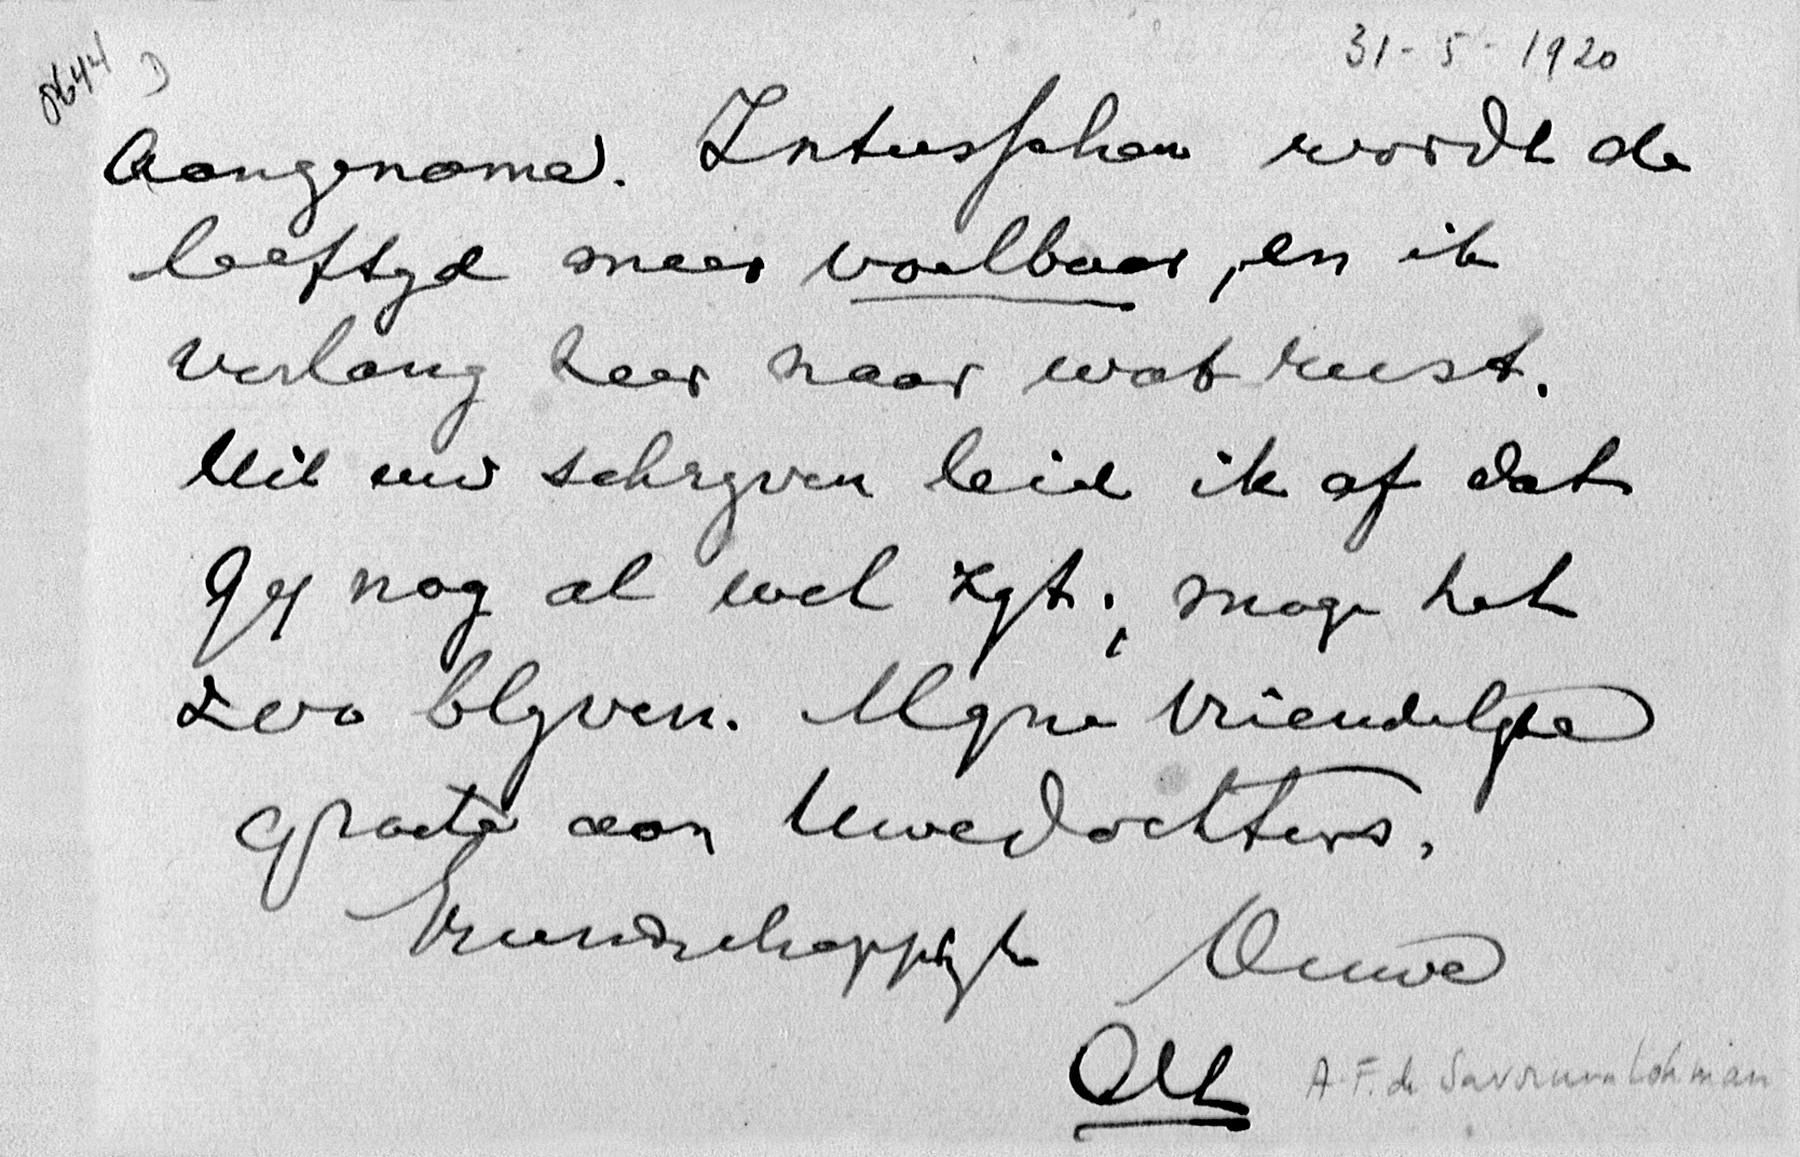 8644 D
31-5-1920
Aangename. Intusschen wordt de
leeftyd meer voelbaar, en ik
verlang zeer naar wat rust.
Uit uw schryven leid ik af dat
Gy nog al wel zyt; moge het
zoo blyven. Myne vriendelyke
groete aan Uwe dochters.
Vriendschappelyk Uwe
A.F. de Savornin Lohman